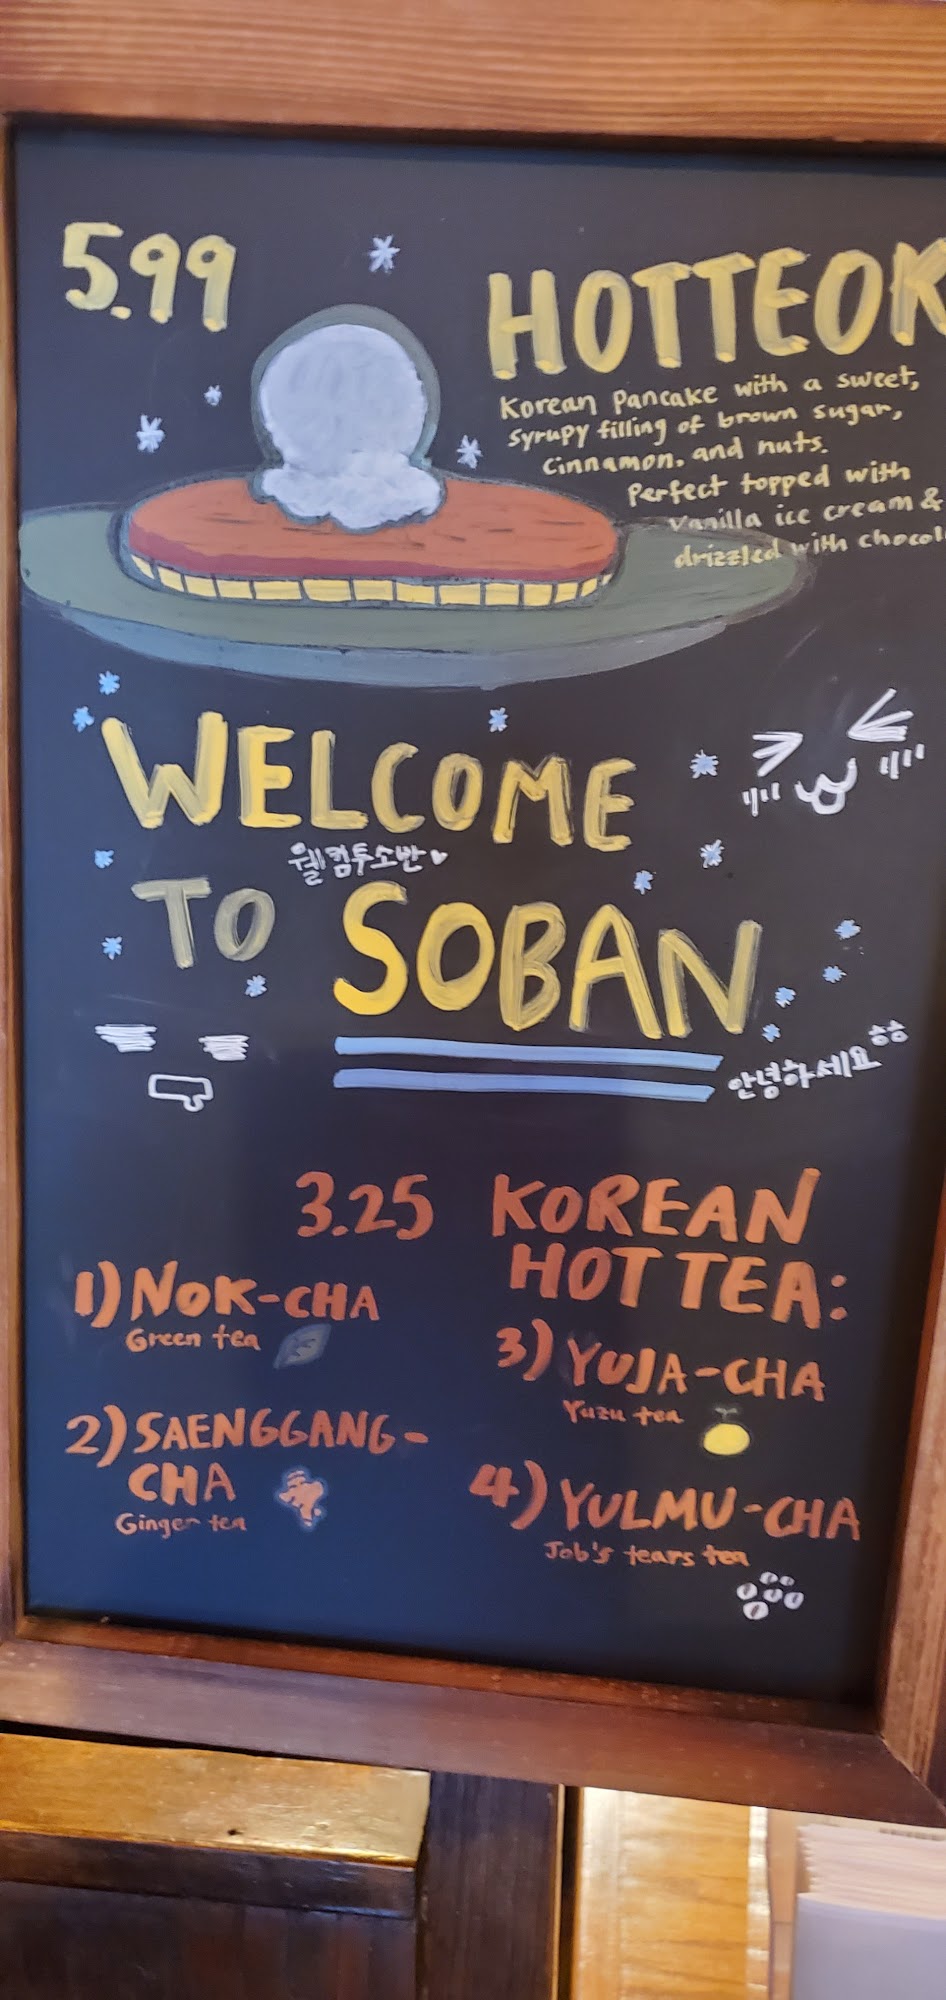 5.99
HOTTEOK
Korean Pancake with a sweet,
syrupy filling of brown sugar,
cinnamon. and nuts.
Perfect topped with
vanilla ice cream &
drizzled with chocol
WELCOME
웰컴투소반♥
TO SOBAN
안녕하세요ㅎㅎ
3.25 KOREAN
HOT TEA:
1) NOK-CHA
Green tea
2) SAENGGANG-
CHA
Ginger tea
3) YUJA-CHA
Yuzu tea
4) YULMU-CHA
Job's tears tea